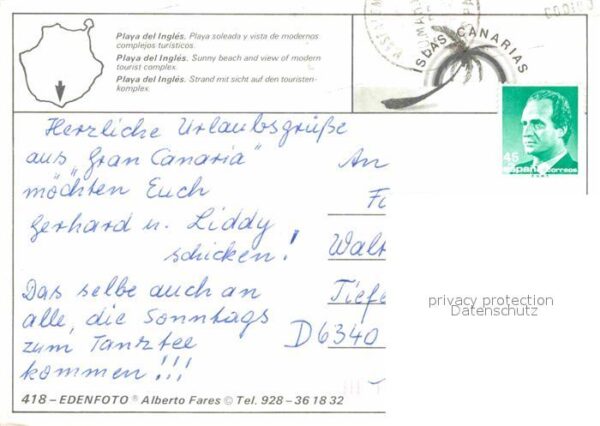 Playa del Inglés. Playa soleada y vista de modernos
complejos turísticos.
Playa del Inglés. Sunny beach and view of modern
tourist complex.
Playa del Inglés. Strand mit sicht auf den touristen-
komplex.
ISLAS CANARIAS
45
España correos
Herzliche Urlaubsgrüße
aus "Gran Canaria"
möchten Euch
Gerhard u. Liddy
schicken!
Das selbe auch an
alle, die Sonntags
zum Tanztee
kommen!!!
An
Walt
Tiefe
D6340
privacy protection
Datenschutz
418 – EDENFOTO ® Alberto Fares © Tel. 928 – 36 18 32